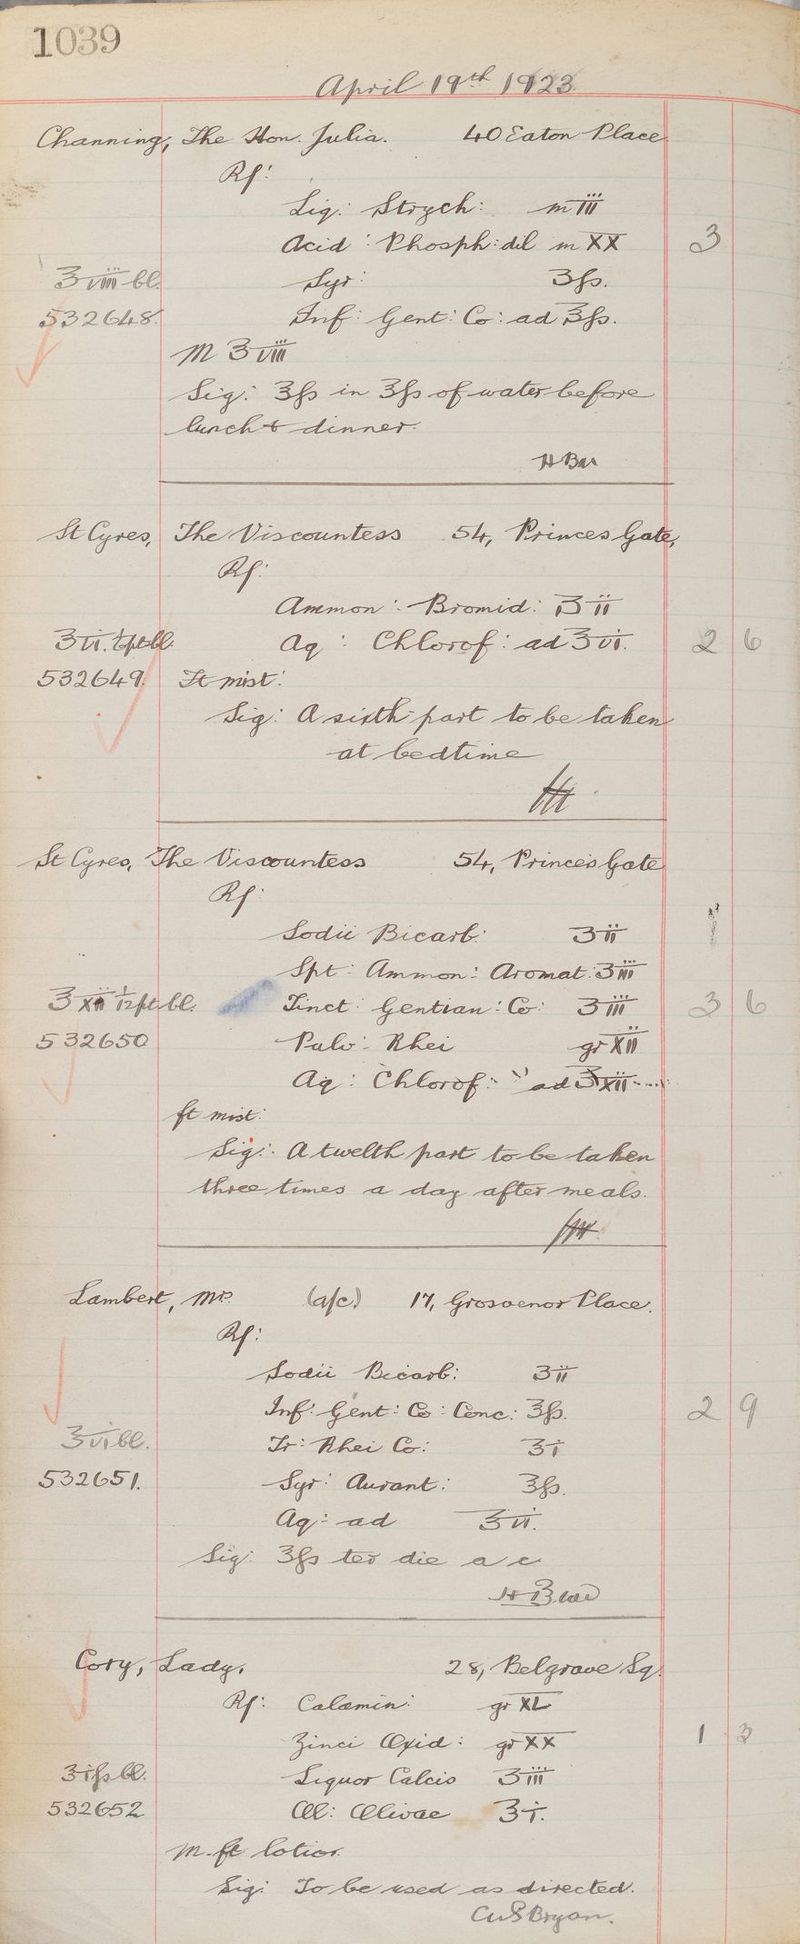 1039
April 19th 1923
Channing, The Hon. Julia. 40 Eaton Place
Rx:
Liq: Strych: m iii
Acid: Phosph: dil m XX 3
℥ viii bl. Syr: ʒfs.
532648. Inf: Gent: Co: ad ℥fs.
M ℥ viii
Sig: ℥fs in ℥fs of water before
lunch & dinner.
St Cyres, The Viscountess 54, Princes Gate,
Rx:
Ammon: Bromid: ʒ ii
℥ vi. 1/6 pt bl. Aq: Chlorof: ad ℥ vi. 2 6
532649. Ft mist:
Sig: A sixth part to be taken
at bedtime
St Cyres, The Viscountess 54, Princes Gate
Rx:
Sodii Bicarb: ʒ ii
Spt: Ammon: Aromat: ʒ iii
℥ xii 1/12 pt bl. Tinct: Gentian: Co: ʒ iii 3 6
532650 Pulv: Rhei gr XII
Aq: Chlorof: ad ℥ xii
ft mist:
Sig: A twelth part to be taken
three times a day after meals.
Lambert, Mr. (a/c) 17, Grosvenor Place.
Rx:
Sodii Bicarb: ʒ ii
Inf: Gent: Co: Conc: ℥fs. 2 9
℥ vi bl. Tr: Rhei Co: ʒ i
532651. Syr: Aurant: ℥fs.
Aq: ad ℥ vi.
Sig: ℥fs ter die a c
Cory, Lady, 28, Belgrave Sq.
Rx: Calamin: gr XL
Zinci Oxid: gr XX 1 3
℥ ifs bl. Liquor Calcis ʒ iii
532652 Ol: Olivae ℥ i.
M. ft lotio.
Sig: To be used as directed.
Bryan.